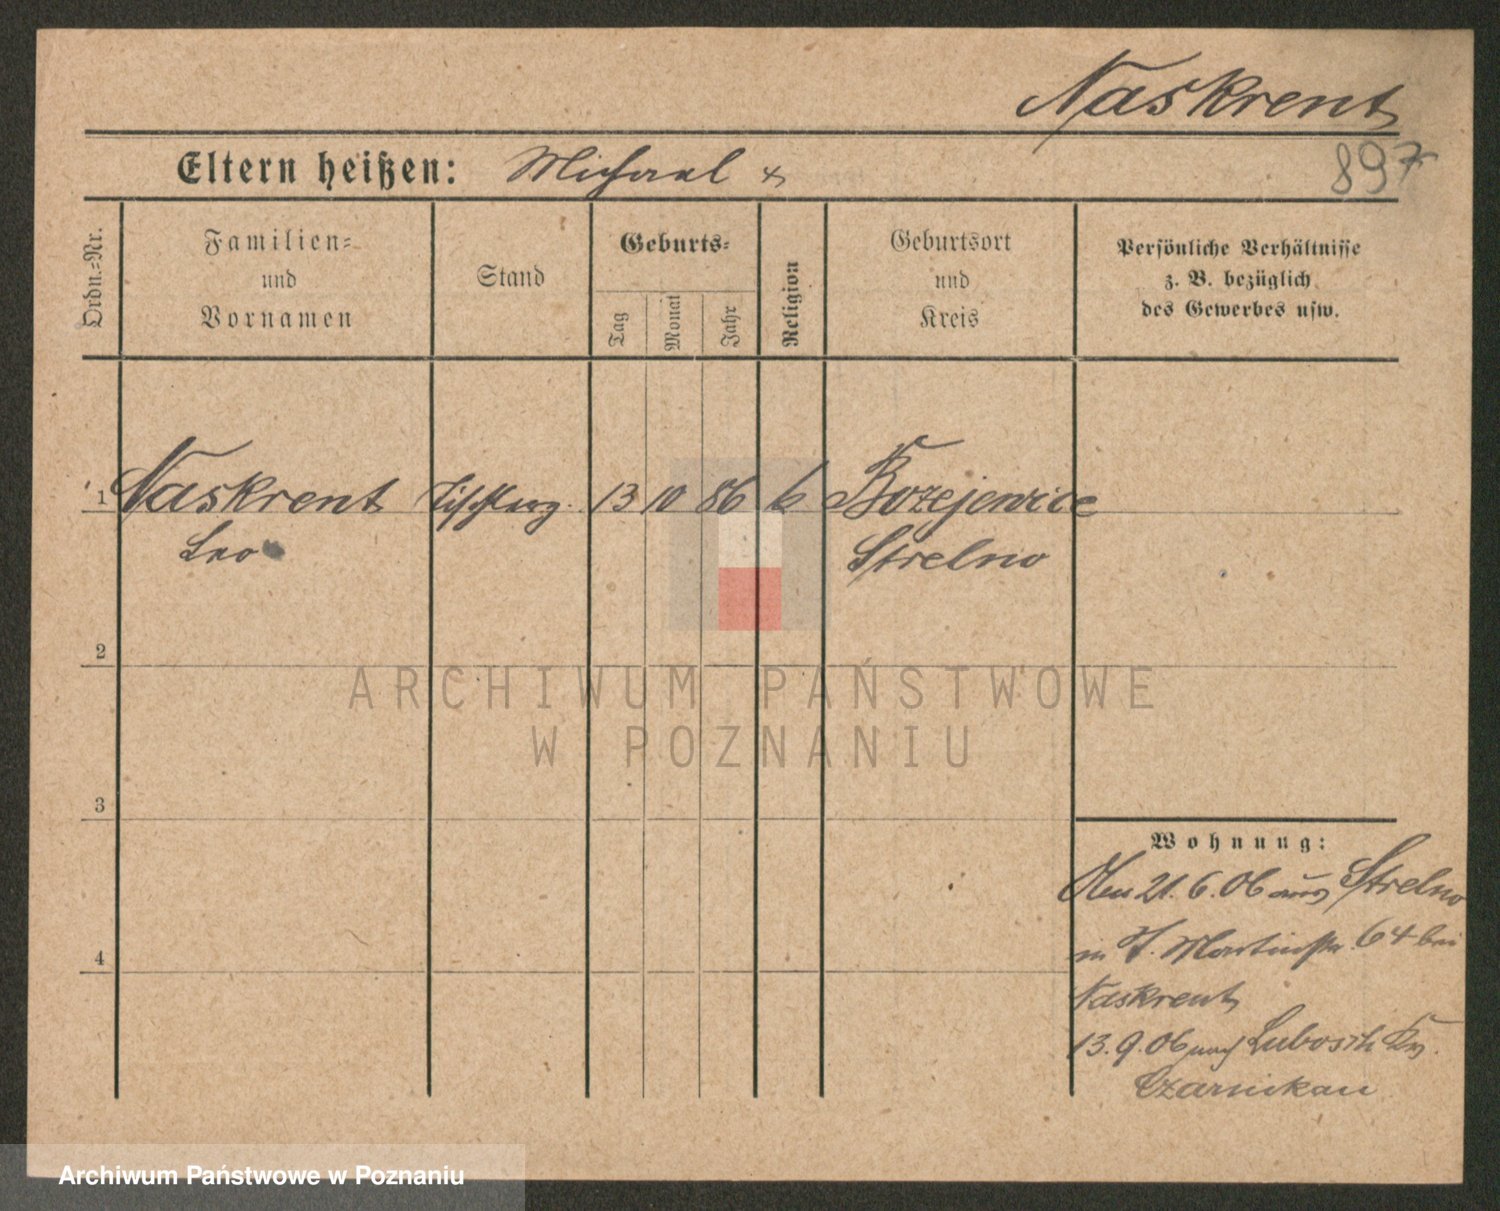 Naskrent
897
Eltern heißen: Michael +
Ordn.-Nr.
Familien-
und
Vornamen
Stand
Geburts-
Tag
Monat
Jahr
Religion
Geburtsort
und
Kreis
Persönliche Verhältnisse
z. B. bezüglich
des Gewerbes usw.
1 Naskrent 13 10 86 k Bozejewice
Leo Strelno
2
ARCHIWUM PAŃSTWOWE
W POZNANIU
3
Wohnung:
21.6.06 aus Strelno
in St. Martinstr. 64 bei
Naskrent
4
13.9.06 nach Lubosch Krs.
Czarnikau
Archiwum Państwowe w Poznaniu